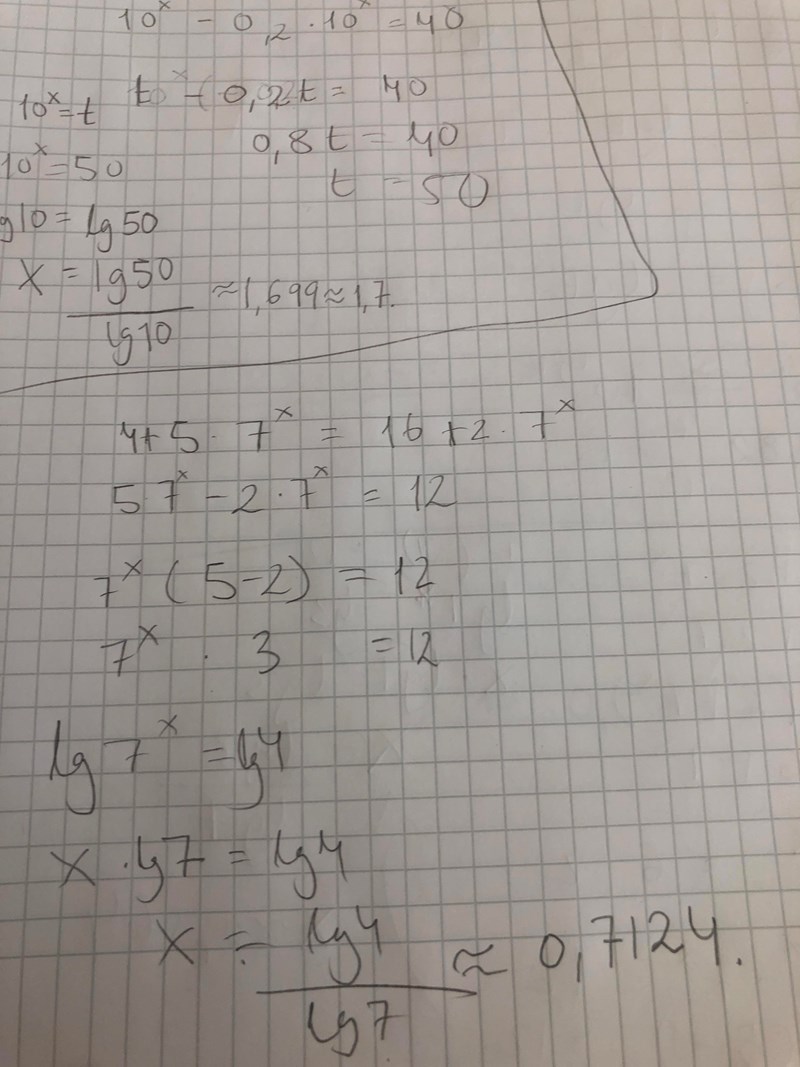 10ˣ - 0,2 · 10ˣ = 40
10ˣ = t
t - 0,2t = 40
0,8t = 40
10ˣ = 50
t = 50
g10 = lg50
x = lg50 / lg10 ≈ 1,699 ≈ 1,7.
4 + 5 · 7ˣ = 16 + 2 · 7ˣ
5 7ˣ - 2 · 7ˣ = 12
7ˣ (5-2) = 12
7ˣ · 3 = 12
lg 7ˣ = lg4
x · lg7 = lg4
x = lg4 / lg7 ≈ 0,7124.